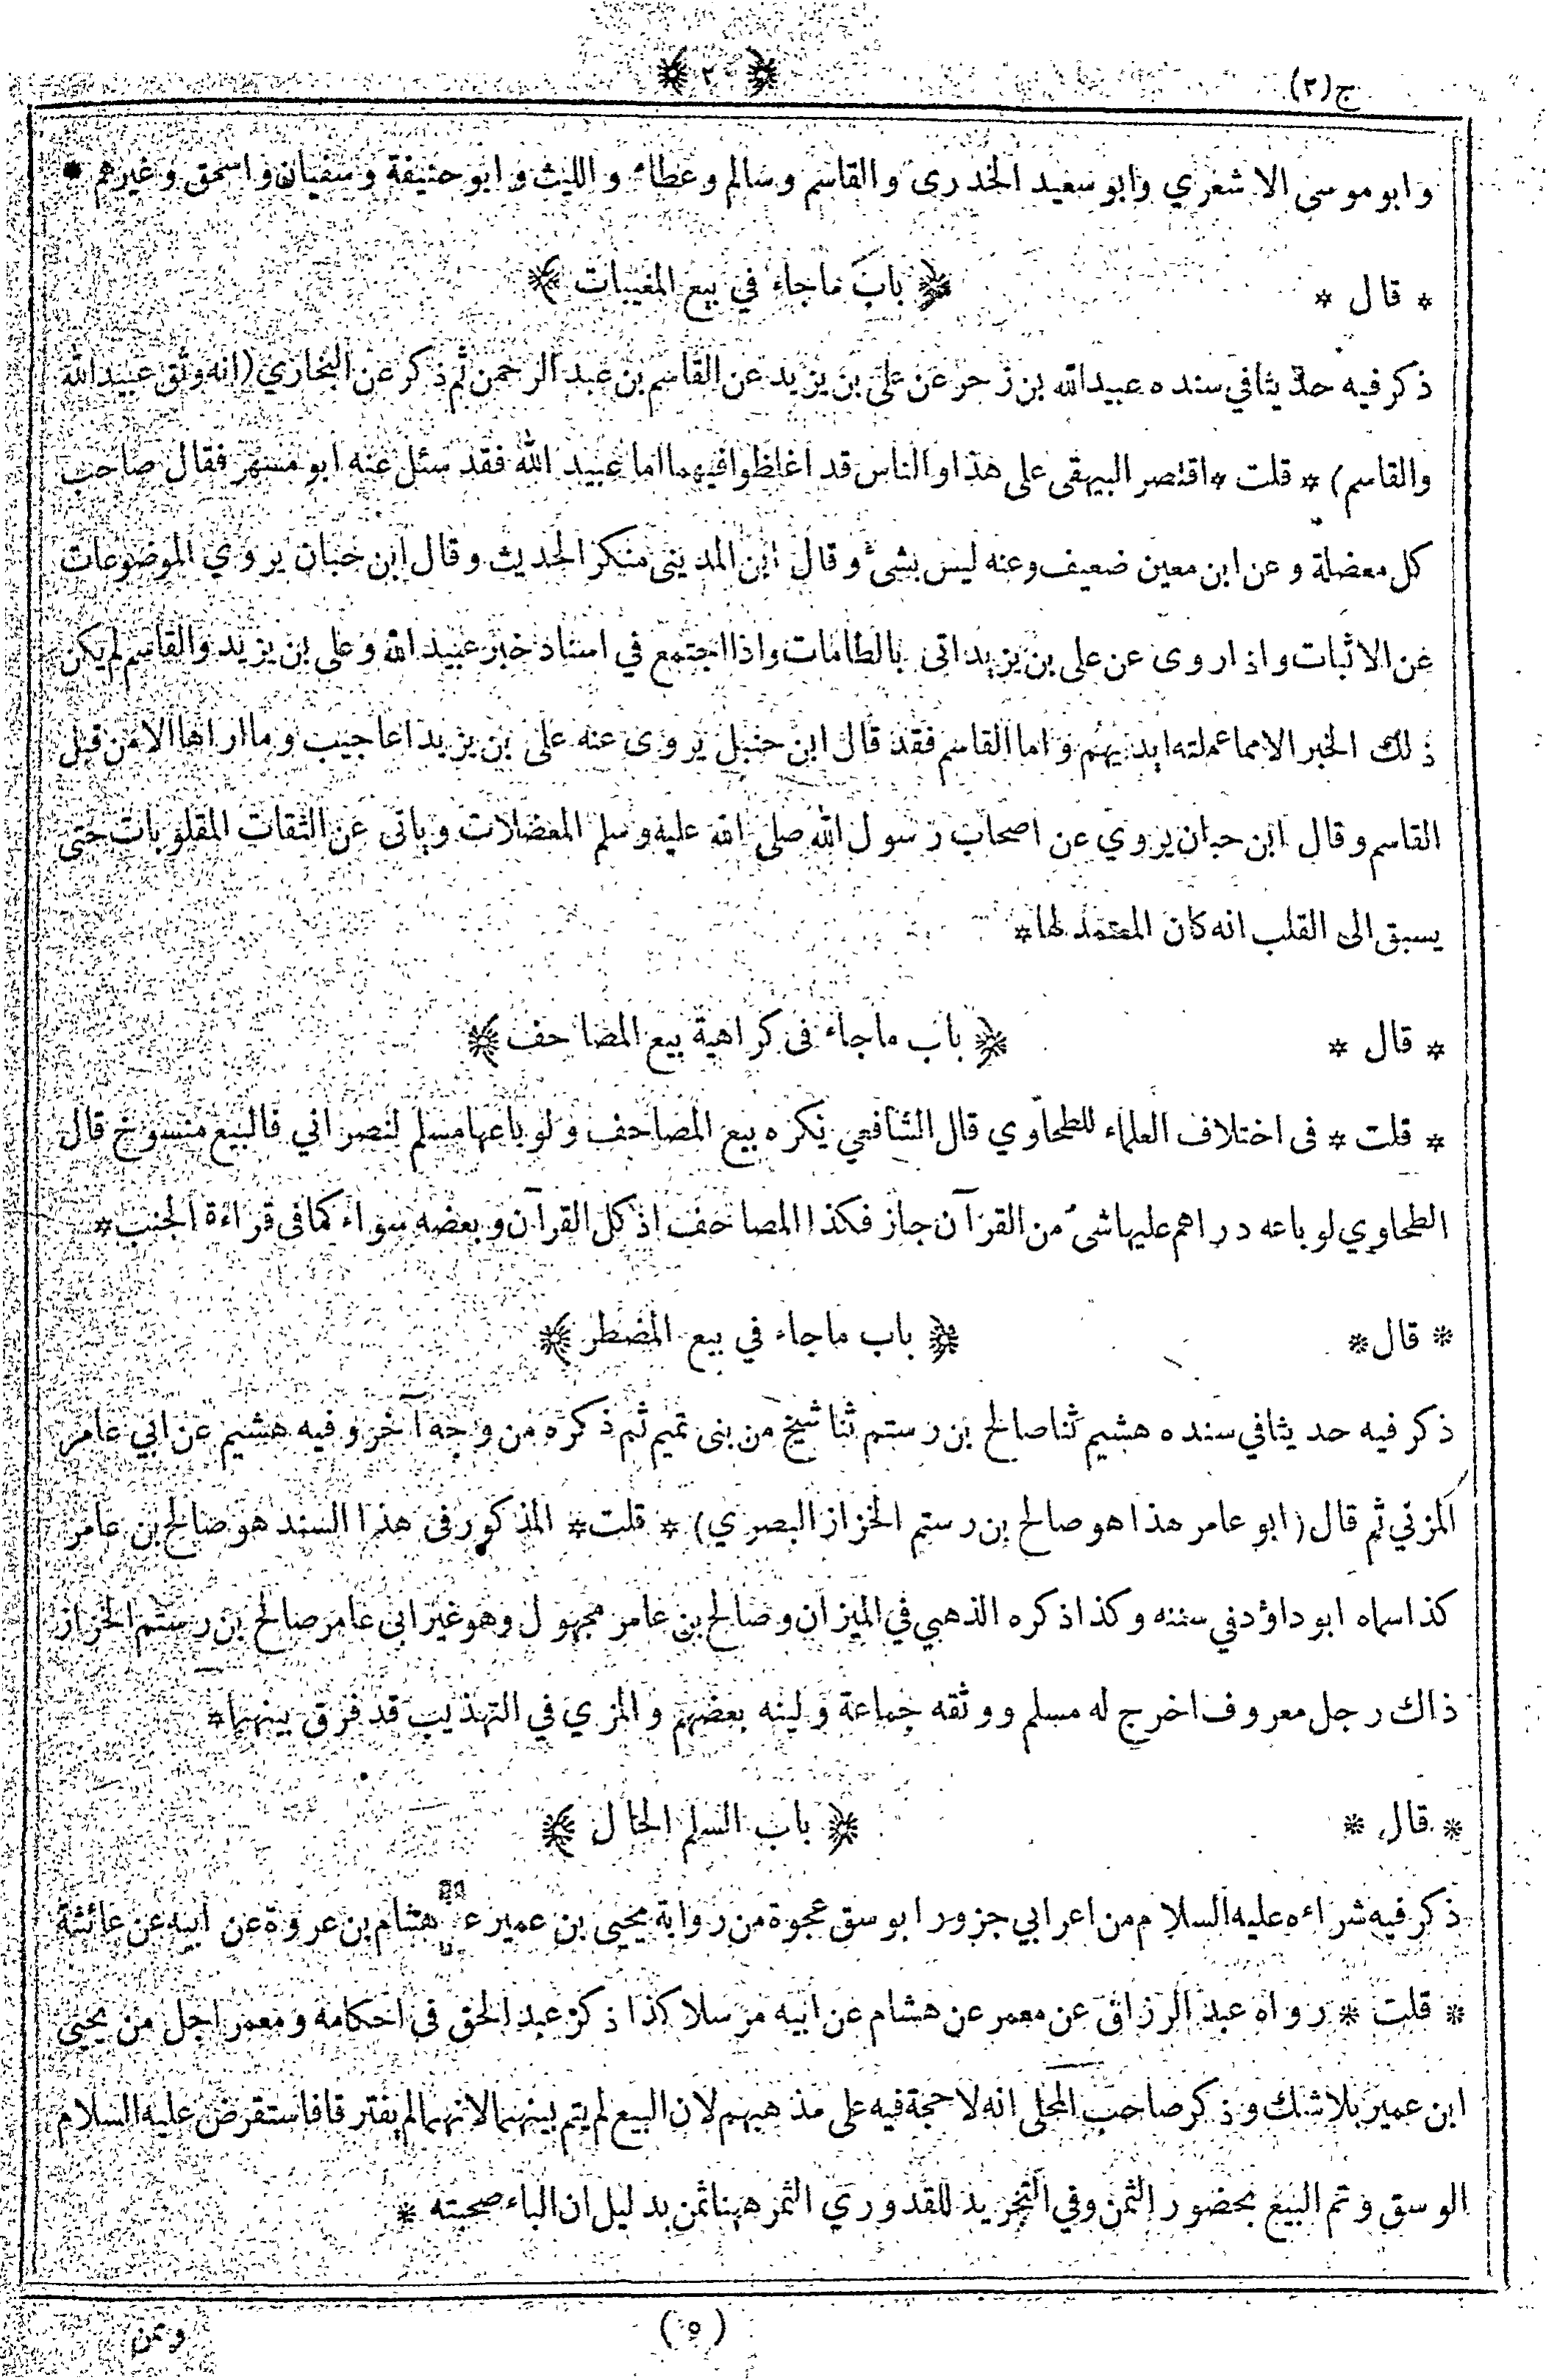 ج (٢)
وابوموسى الاشعري وابوسعيد الخدرى والقاسم وسالم وعطاء والليث وابوحنيفة وسفيان واسحق وغيرهم *
* قال * ﴿ باب ماجاء في بيع المغيبات ﴾
ذكر فيه حديثا في سنده عبيدالله بن زحر عن على بن يزيد عن القاسم بن عبد الرحمن ثم ذكر عن البخاري (انه وثق عبيدالله
والقاسم) * قلت * اقتصر البيهقى على هذا والناس قد اغلظوا فيهما اما عبيد الله فقد سئل عنه ابو مسهر فقال صاحب
كل معضلة و عن ابن معين ضعيف وعنه ليس بشئ وقال ابن المدينى منكر الحديث وقال ابن حبان يروي الموضوعات
عن الاثبات واذا روى عن على بن يزيد اتى بالطامات واذا اجتمع في اسناد خبر عبيد الله وعلى بن يزيد والقاسم لم يكن
ذلك الخبر الا مما عملته ايديهم واما القاسم فقد قال ابن حنبل يروى عنه على بن يزيد اعاجيب وما اراها الا من قبل
القاسم وقال ابن حبان يروي عن اصحاب رسول الله صلى الله عليه وسلم المعضلات وياتى عن الثقات المقلوبات حتى
يسبق الى القلب انه كان المعتمد لها *
* قال * ﴿ باب ماجاء فى كراهية بيع المصاحف ﴾
* قلت * فى اختلاف العلماء للطحاوي قال الشافعي يكره بيع المصاحف ولو باعها مسلم لنصراني فالبيع منسوخ قال
الطحاوي لو باعه دراهم عليها شئ من القرآن جاز فكذا المصاحف اذ كل القرآن وبعضه سواء كما فى قراءة الجنب *
* قال * ﴿ باب ماجاء في بيع المضطر ﴾
ذكر فيه حديثا في سنده هشيم ثنا صالح بن رستم ثنا شيخ من بنى تميم ثم ذكره من وجه آخر وفيه هشيم عن ابي عامر
المزني ثم قال (ابو عامر هذا هو صالح بن رستم الخزاز البصري) * قلت * المذكور فى هذا السند هو صالح بن عامر
كذا سماه ابو داؤد في سننه وكذا ذكره الذهبي في الميزان وصالح بن عامر مجهول وهو غير ابى عامر صالح بن رستم الخزاز
ذاك رجل معروف اخرج له مسلم ووثقه جماعة ولينه بعضهم والمزي في التهذيب قد فرق بينهما *
* قال * ﴿ باب السلم الحال ﴾
ذكر فيه شراءه عليه السلام من اعرابي جزورا بوسق عجوة من رواية يحيى بن عمير هشام بن عروة عن ابيه عن عائشة
* قلت * رواه عبد الرزاق عن معمر عن هشام عن ابيه مرسلا كذا ذكره عبد الحق فى احكامه ومعمر اجل من يحيى
ابن عمير بلا شك وذكر صاحب المحلى انه لا حجة فيه على مذهبهم لان البيع لم يتم بينهما لانهما لم يفترقا فاستقرض عليه السلام
الوسق وتم البيع بحضور الثمن وفي التجريد للقدوري الثمر ههنا ثمن بدليل ان الباء صحبته *
(٥)
ومن